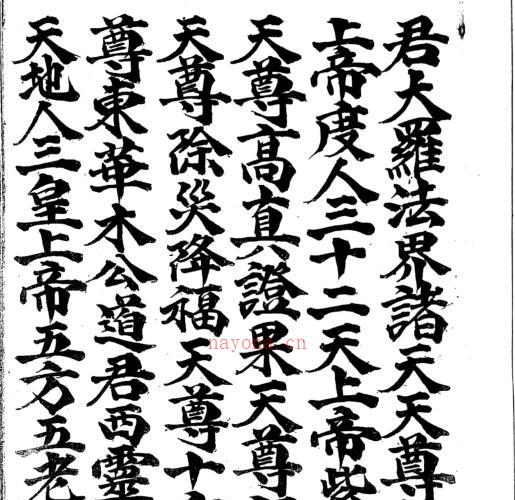 君大羅法界諸天天尊
上帝度人三十二天上帝紫
天尊高真證果天尊
天尊除災降福天尊十
尊東華木公道君西靈
天地人三皇上帝五方五老
nayona.cn